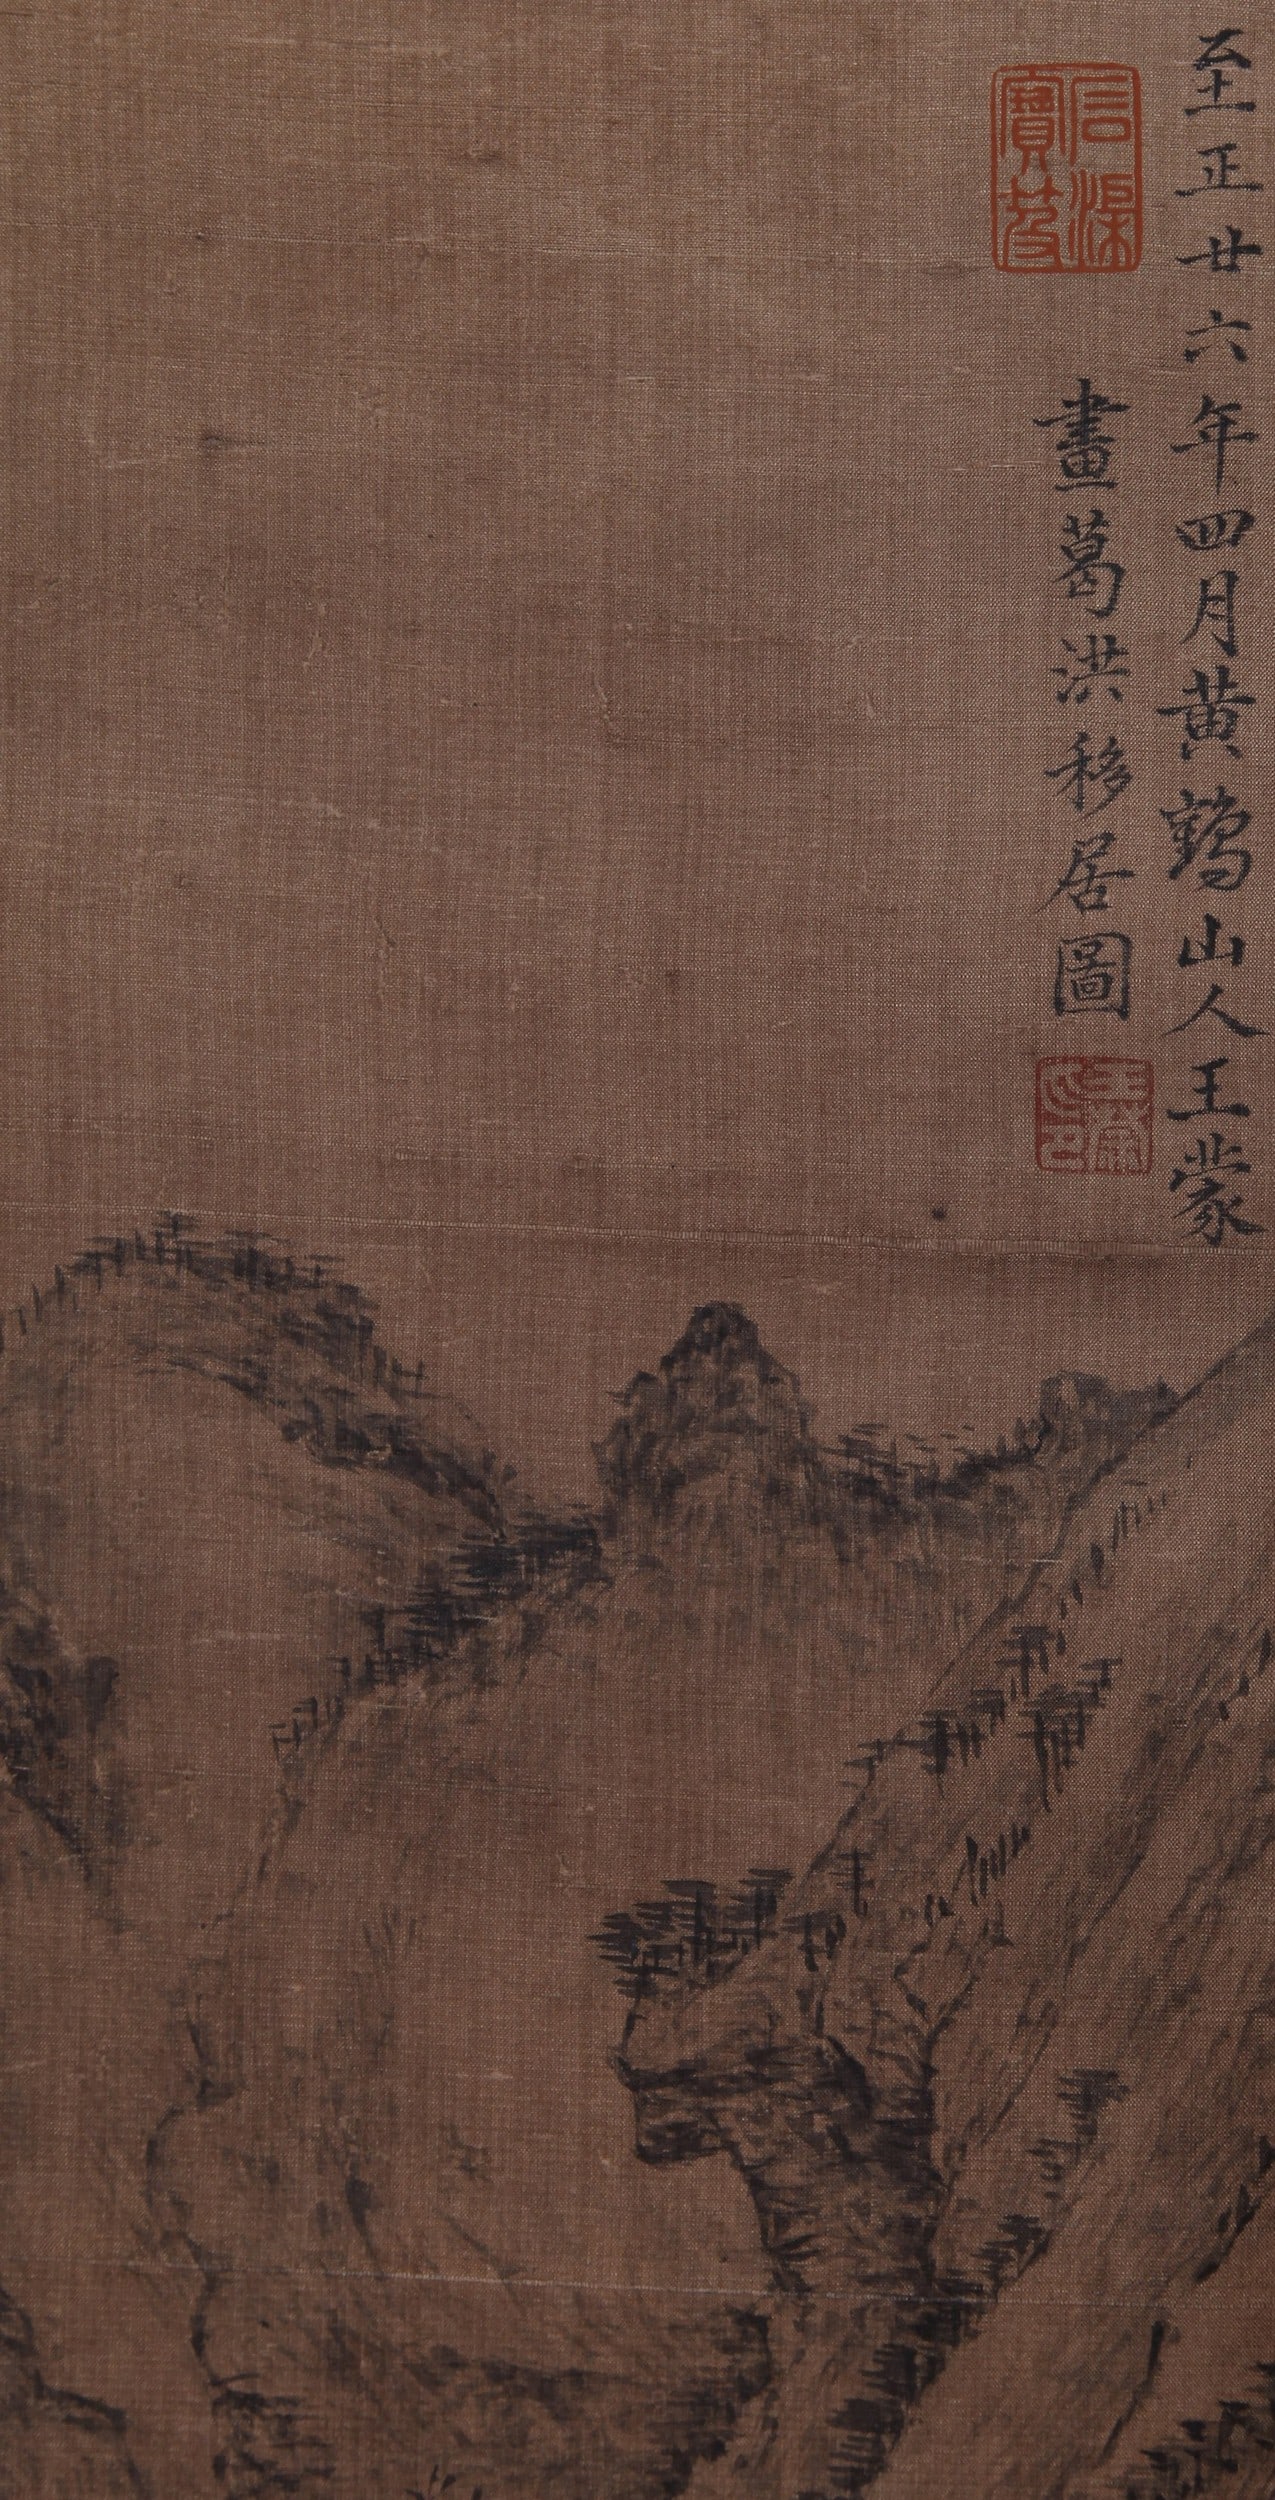 至正廿六年四月黄鶴山人王蒙
畫葛洪移居圖
王蒙印